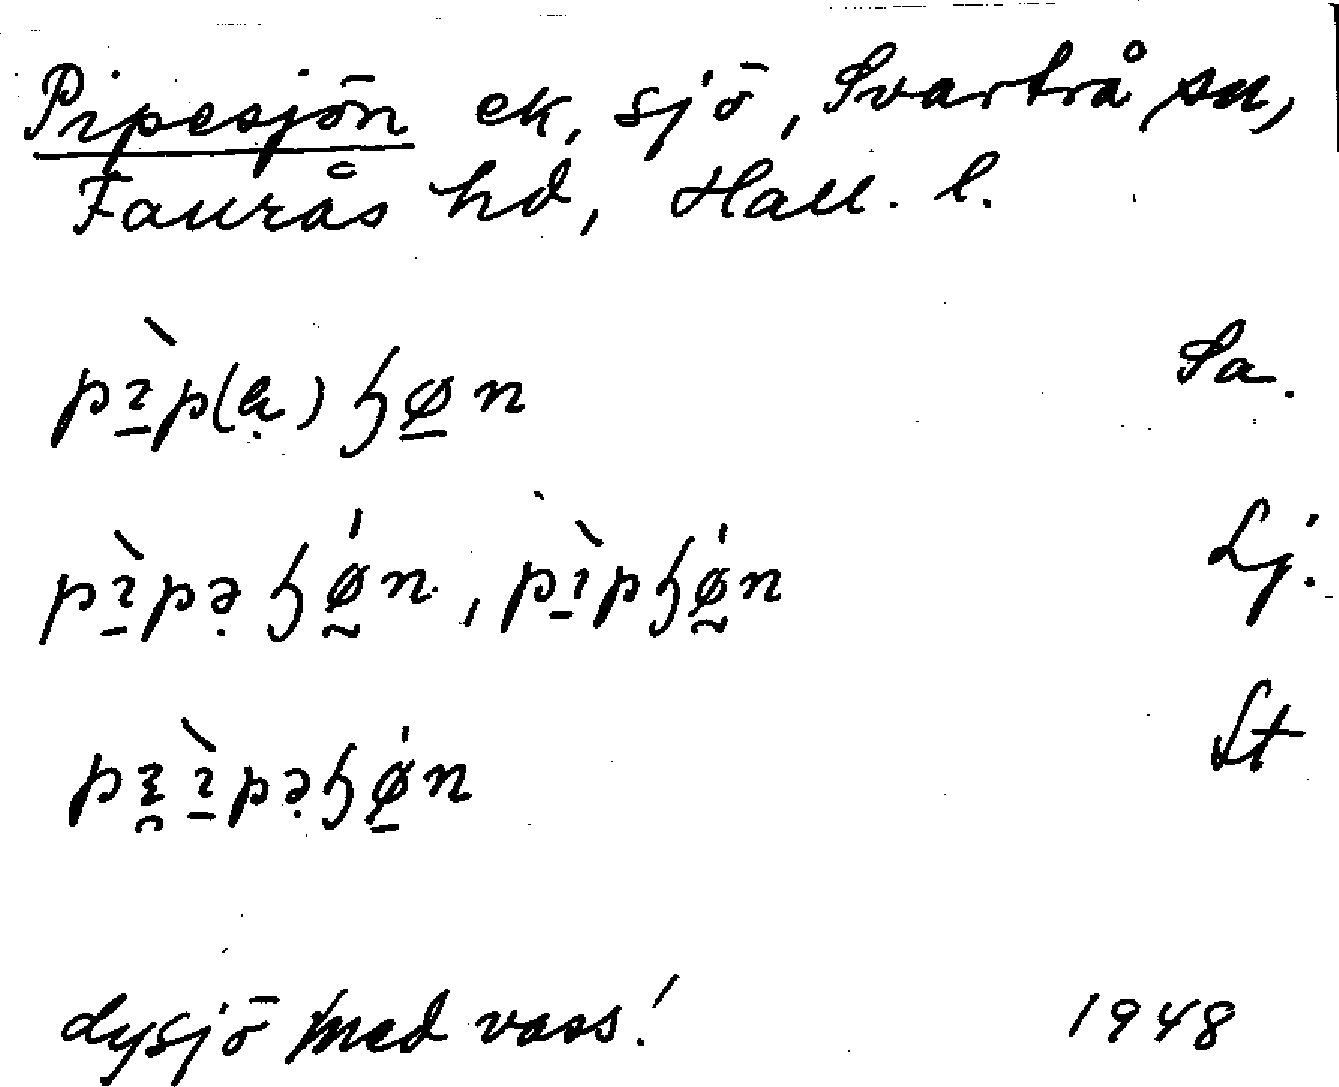 Pipesjön ek, sjö, Svartrå sn,
Faurås hd, Hall. l.
pìp(ə)ɧøn Sa.
pìpəɧǿn, pìpɧǿn Lj.
peìpəɧǿn St
dysjö med vass! 1948